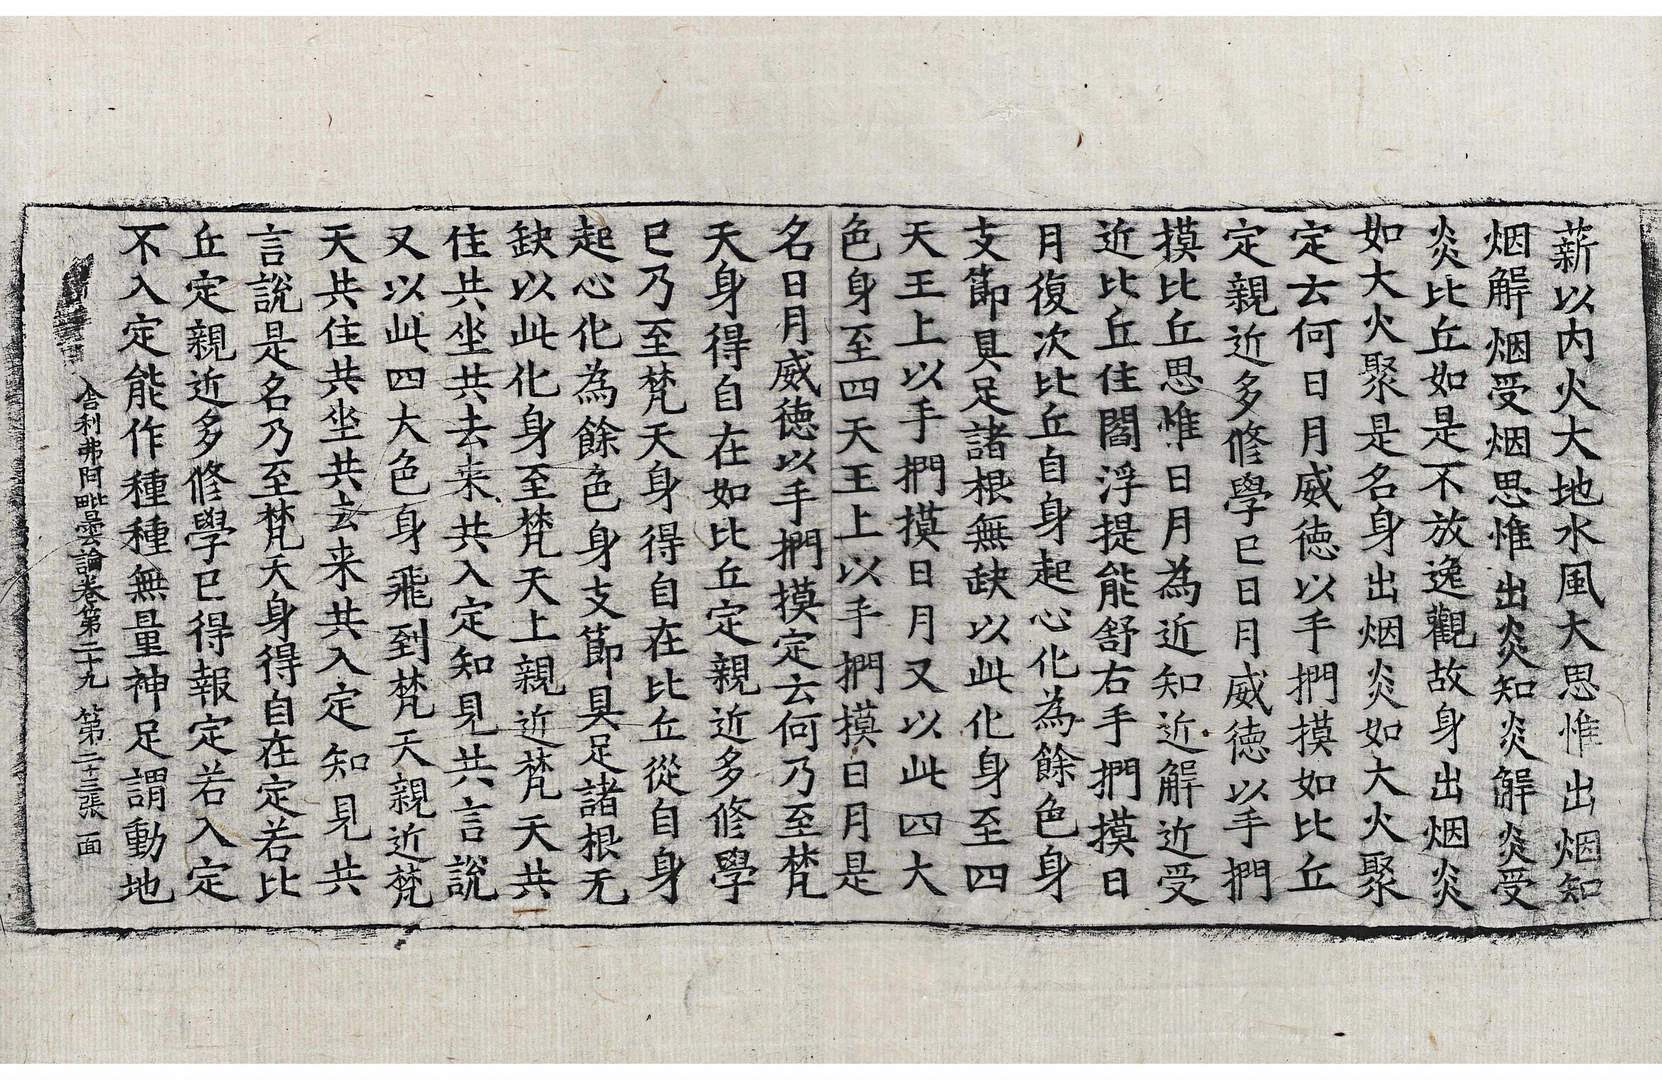 薪以内火大地水風大思惟出烟知
烟解烟受烟思惟出炎知炎解炎受
炎比丘如是不放逸觀故身出烟炎
如大火聚是名身出烟炎如大火聚
定云何日月威德以手捫摸如比丘
定親近多修學已日月威德以手捫
摸比丘思惟日月為近知近解近受
近比丘住閻浮提能舒右手捫摸日
月復次比丘自身起心化為餘色身
支節具足諸根無缺以此化身至四
天王上以手捫摸日月又以此四大
色身至四天王上以手捫摸日月是
名日月威德以手捫摸定云何乃至梵
天身得自在如比丘定親近多修學
已乃至梵天身得自在比丘從自身
起心化為餘色身支節具足諸根无
缺以此化身至梵天上親近梵天共
住共坐共去来共入定知見共言說
又以此四大色身飛到梵天親近梵
天共住共坐共去来共入定知見共
言說是名乃至梵天身得自在定若比
丘定親近多修學已得報定若入定
不入定能作種種無量神足謂動地
舍利弗阿毗曇論卷第二十九 第二十三張 面